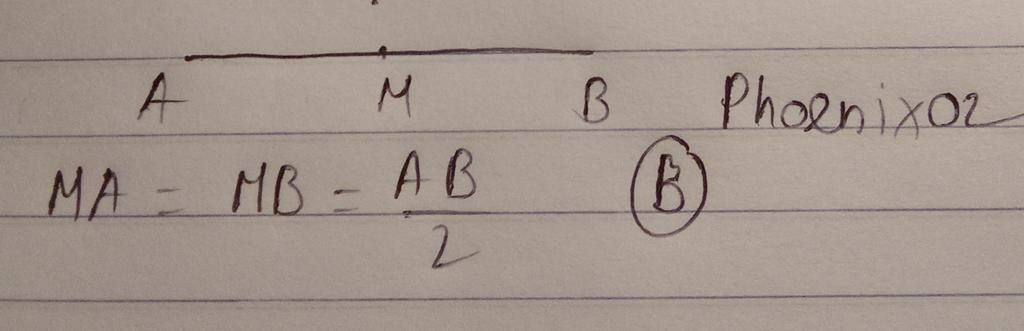 A M B Phoenix02
MA = MB = AB/2 B